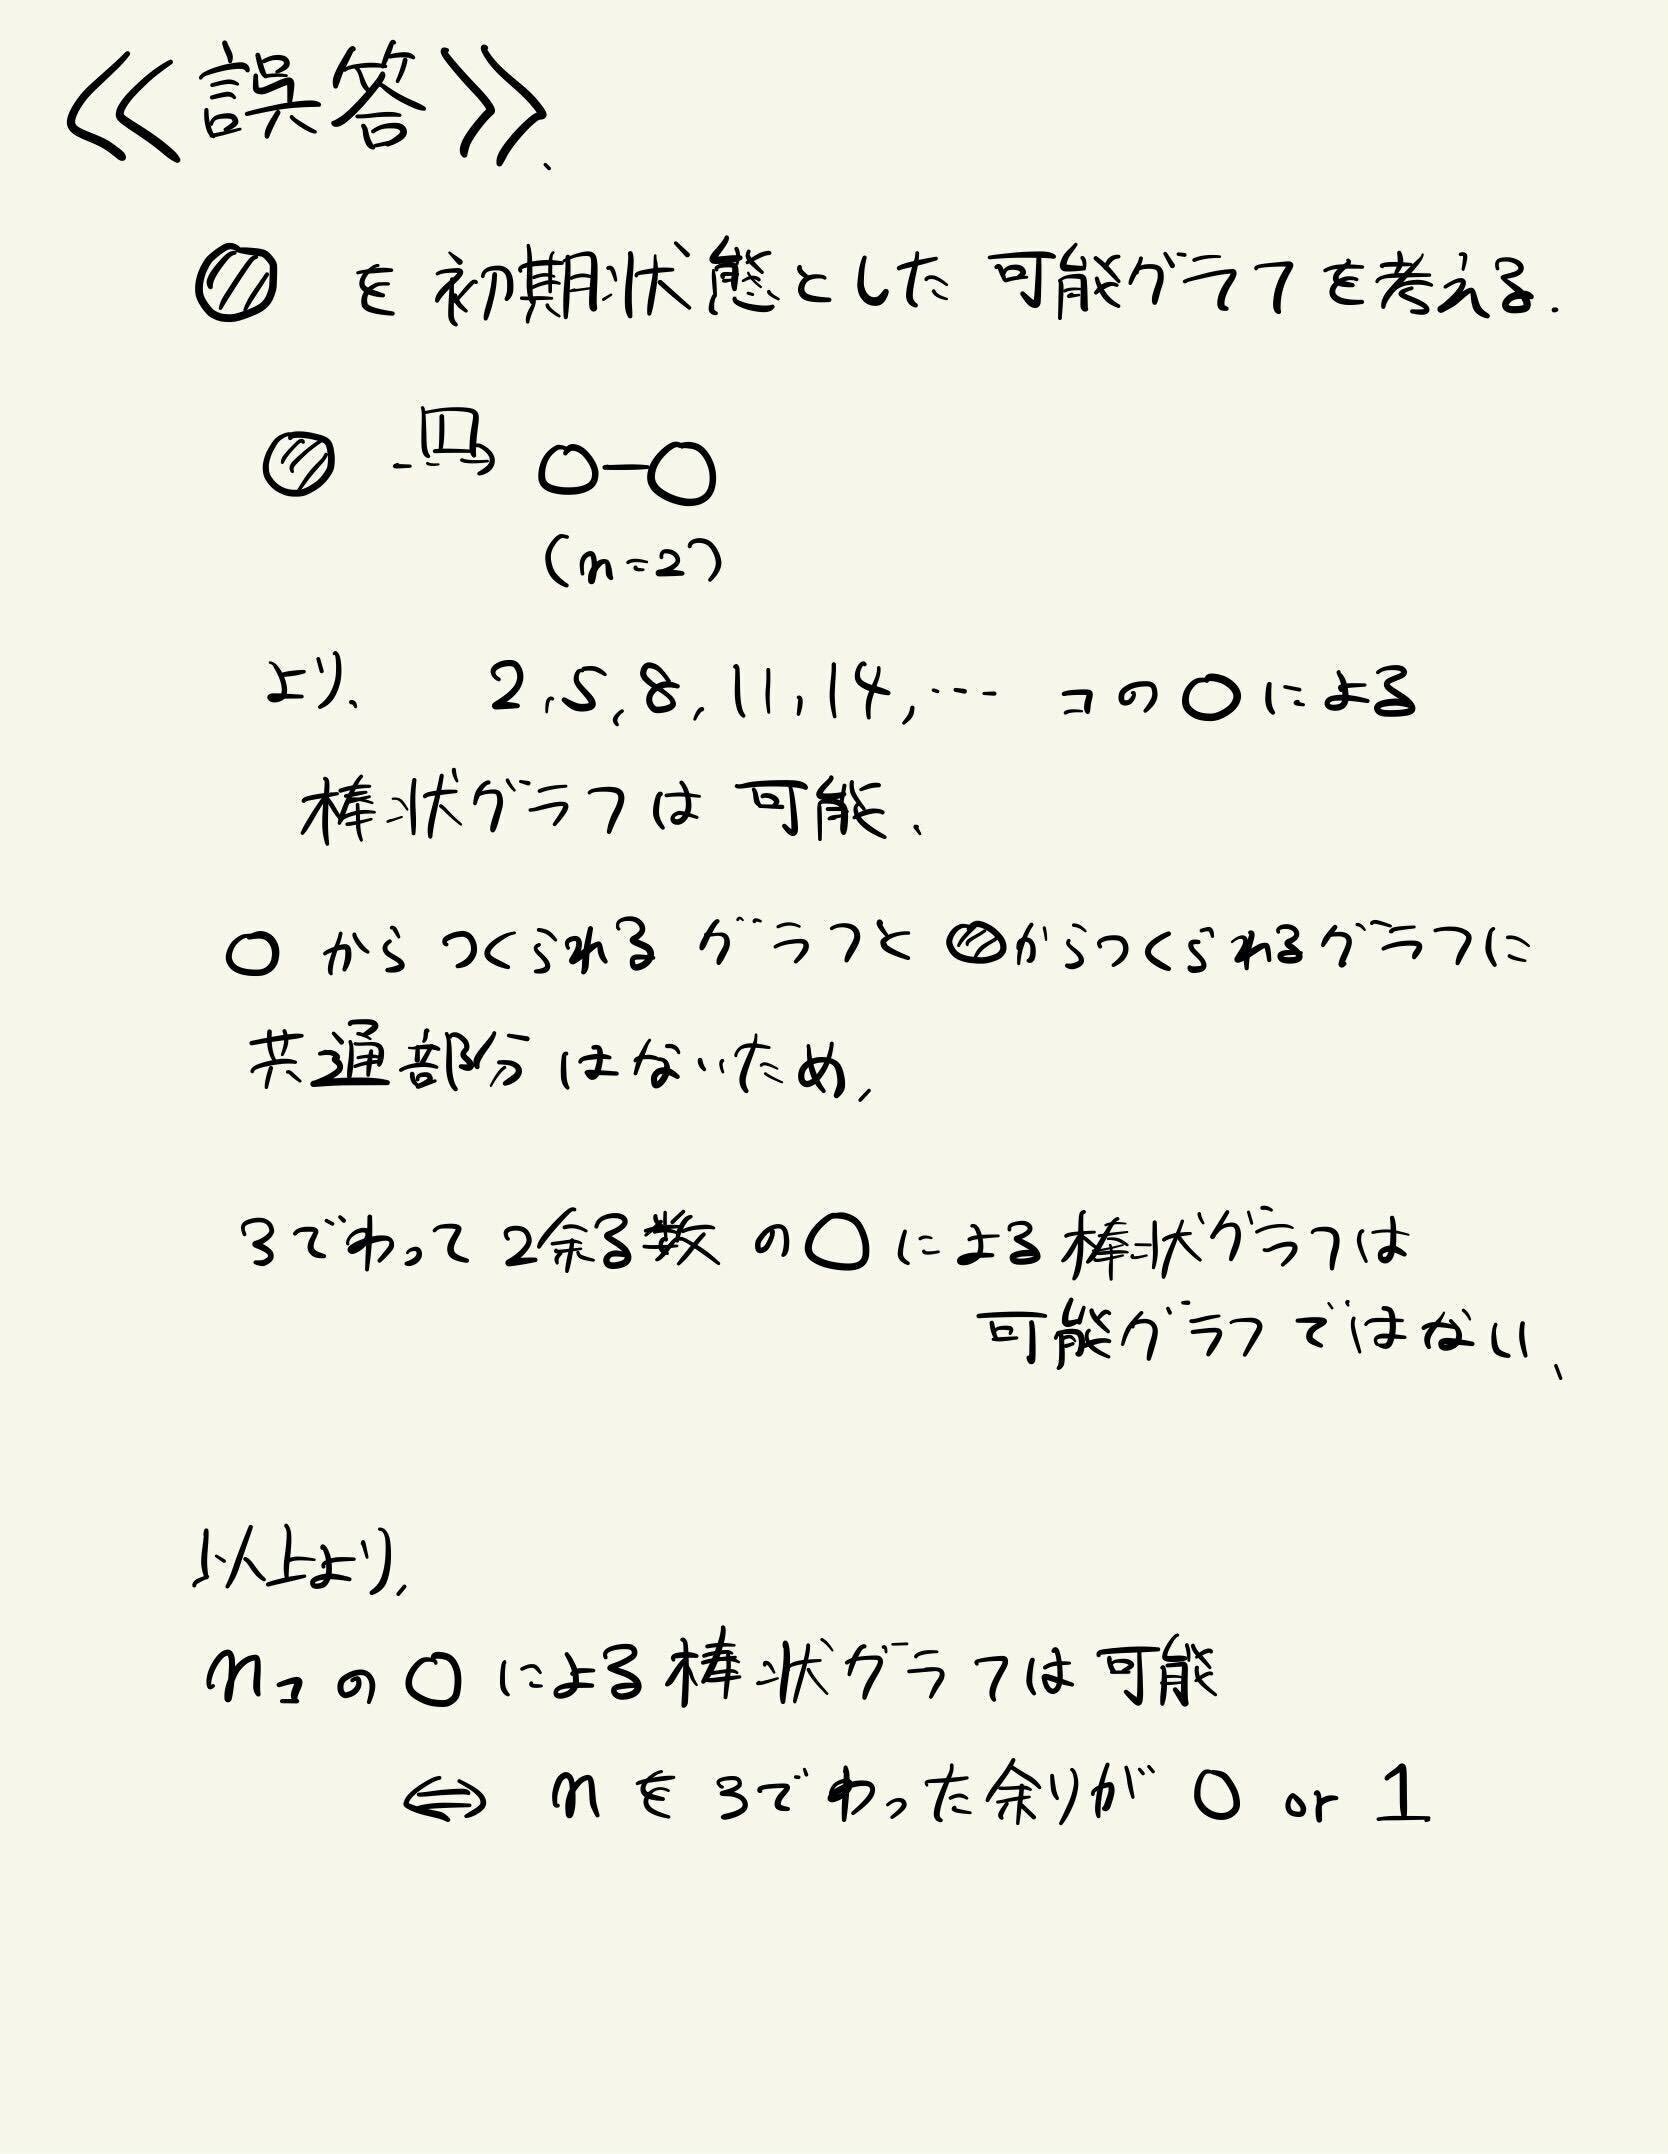 《誤答》、
を初期状態とした可能グラフを考える.
II
(n=2)
より、 2,5,8,11,14,… コの○による
棒状グラフは可能、
○からつくられるグラフとからつくられるグラフに
共通部分はないため、
3でわって2余る数の○による棒状グラフは
可能グラフではない、
以上より,
nコの○による棒状グラフは可能
⇔ nを3でわった余りが 0 or 1